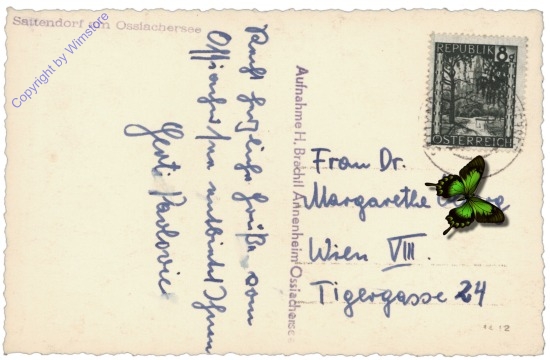 Sattendorf am Ossiachersee
Copyright by Wimstore
Recht herzliche Grüße vom
Ossiachersee entbietet Ihnen
Gerti Pavlovic
Aufnahme H. Brachil Annenheim Ossiachersee
REPUBLIK 8g
ÖSTERREICH
Frau Dr.
Margarethe
Wien VIII.
Tigergasse 24